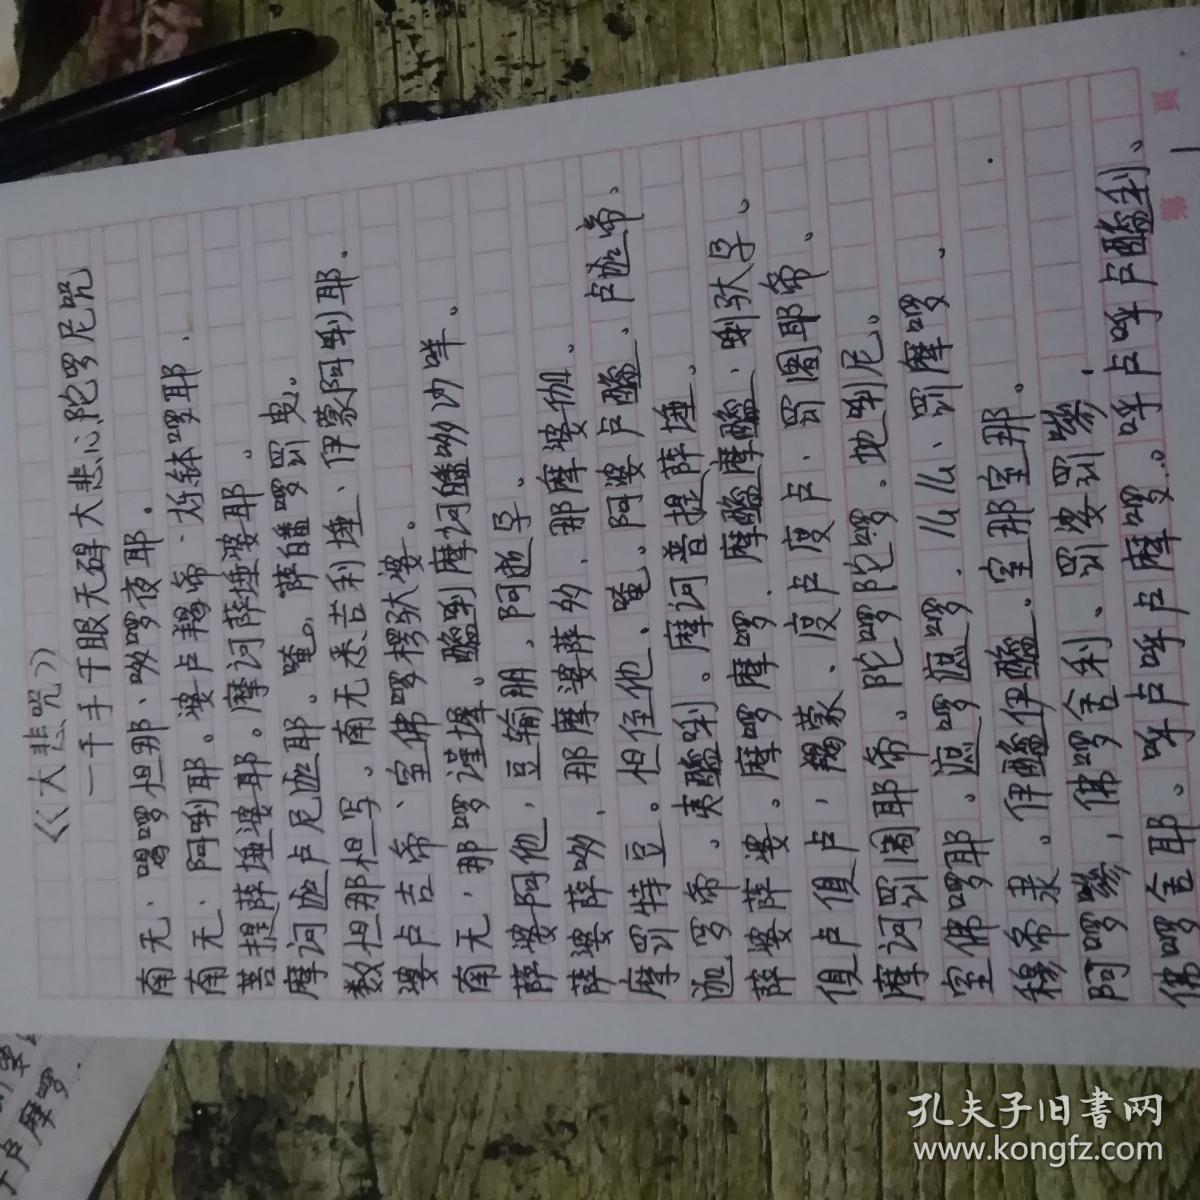 《大悲咒》
一千手千眼无碍大悲心陀罗尼咒
南无·喝啰怛那、哆啰夜耶。
南无·阿唎耶。婆卢羯帝·烁钵啰耶·
菩提萨埵婆耶。摩诃萨埵婆耶。
摩诃迦卢尼迦耶。唵。萨皤啰罚曳。
数怛那怛写。南无悉吉利埵、伊蒙阿唎耶·
婆卢吉帝、室佛啰楞驮婆。
南无·那啰谨墀。醯唎摩诃皤哆沙咩。
萨婆阿他，豆输朋，阿逝孕。
萨婆萨哆，那婆萨多，那摩婆伽。
摩罚特豆。怛侄他、唵。阿婆卢醯、卢迦帝、
迦罗帝。夷醯唎。摩诃菩提萨埵。
萨婆萨婆。摩啰摩啰．摩醯摩醯，唎驮孕。
俱卢俱卢，羯蒙、度卢度卢．罚阇耶帝。
摩诃罚阇耶帝。陀啰陀啰．地唎尼。
室佛啰耶。遮啰遮啰．么么、罚摩啰。
穆帝隶。伊醯伊醯。室那室那。
阿啰嘇，佛啰舍利、罚娑罚嘇，
佛啰舍耶。呼卢呼卢摩啰。呼卢呼卢醯利。
第 頁
1
卢摩啰．
孔夫子旧書网
www.kongfz.com